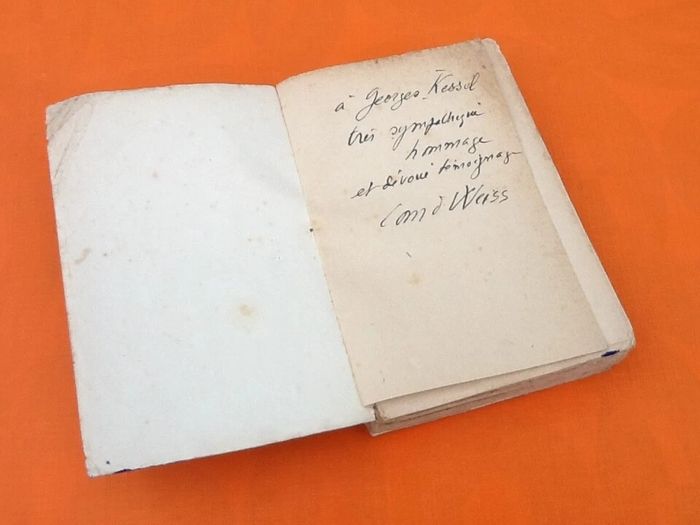 à Georges Kessel
très sympathique
hommage
et dévoué témoignage
Weiss